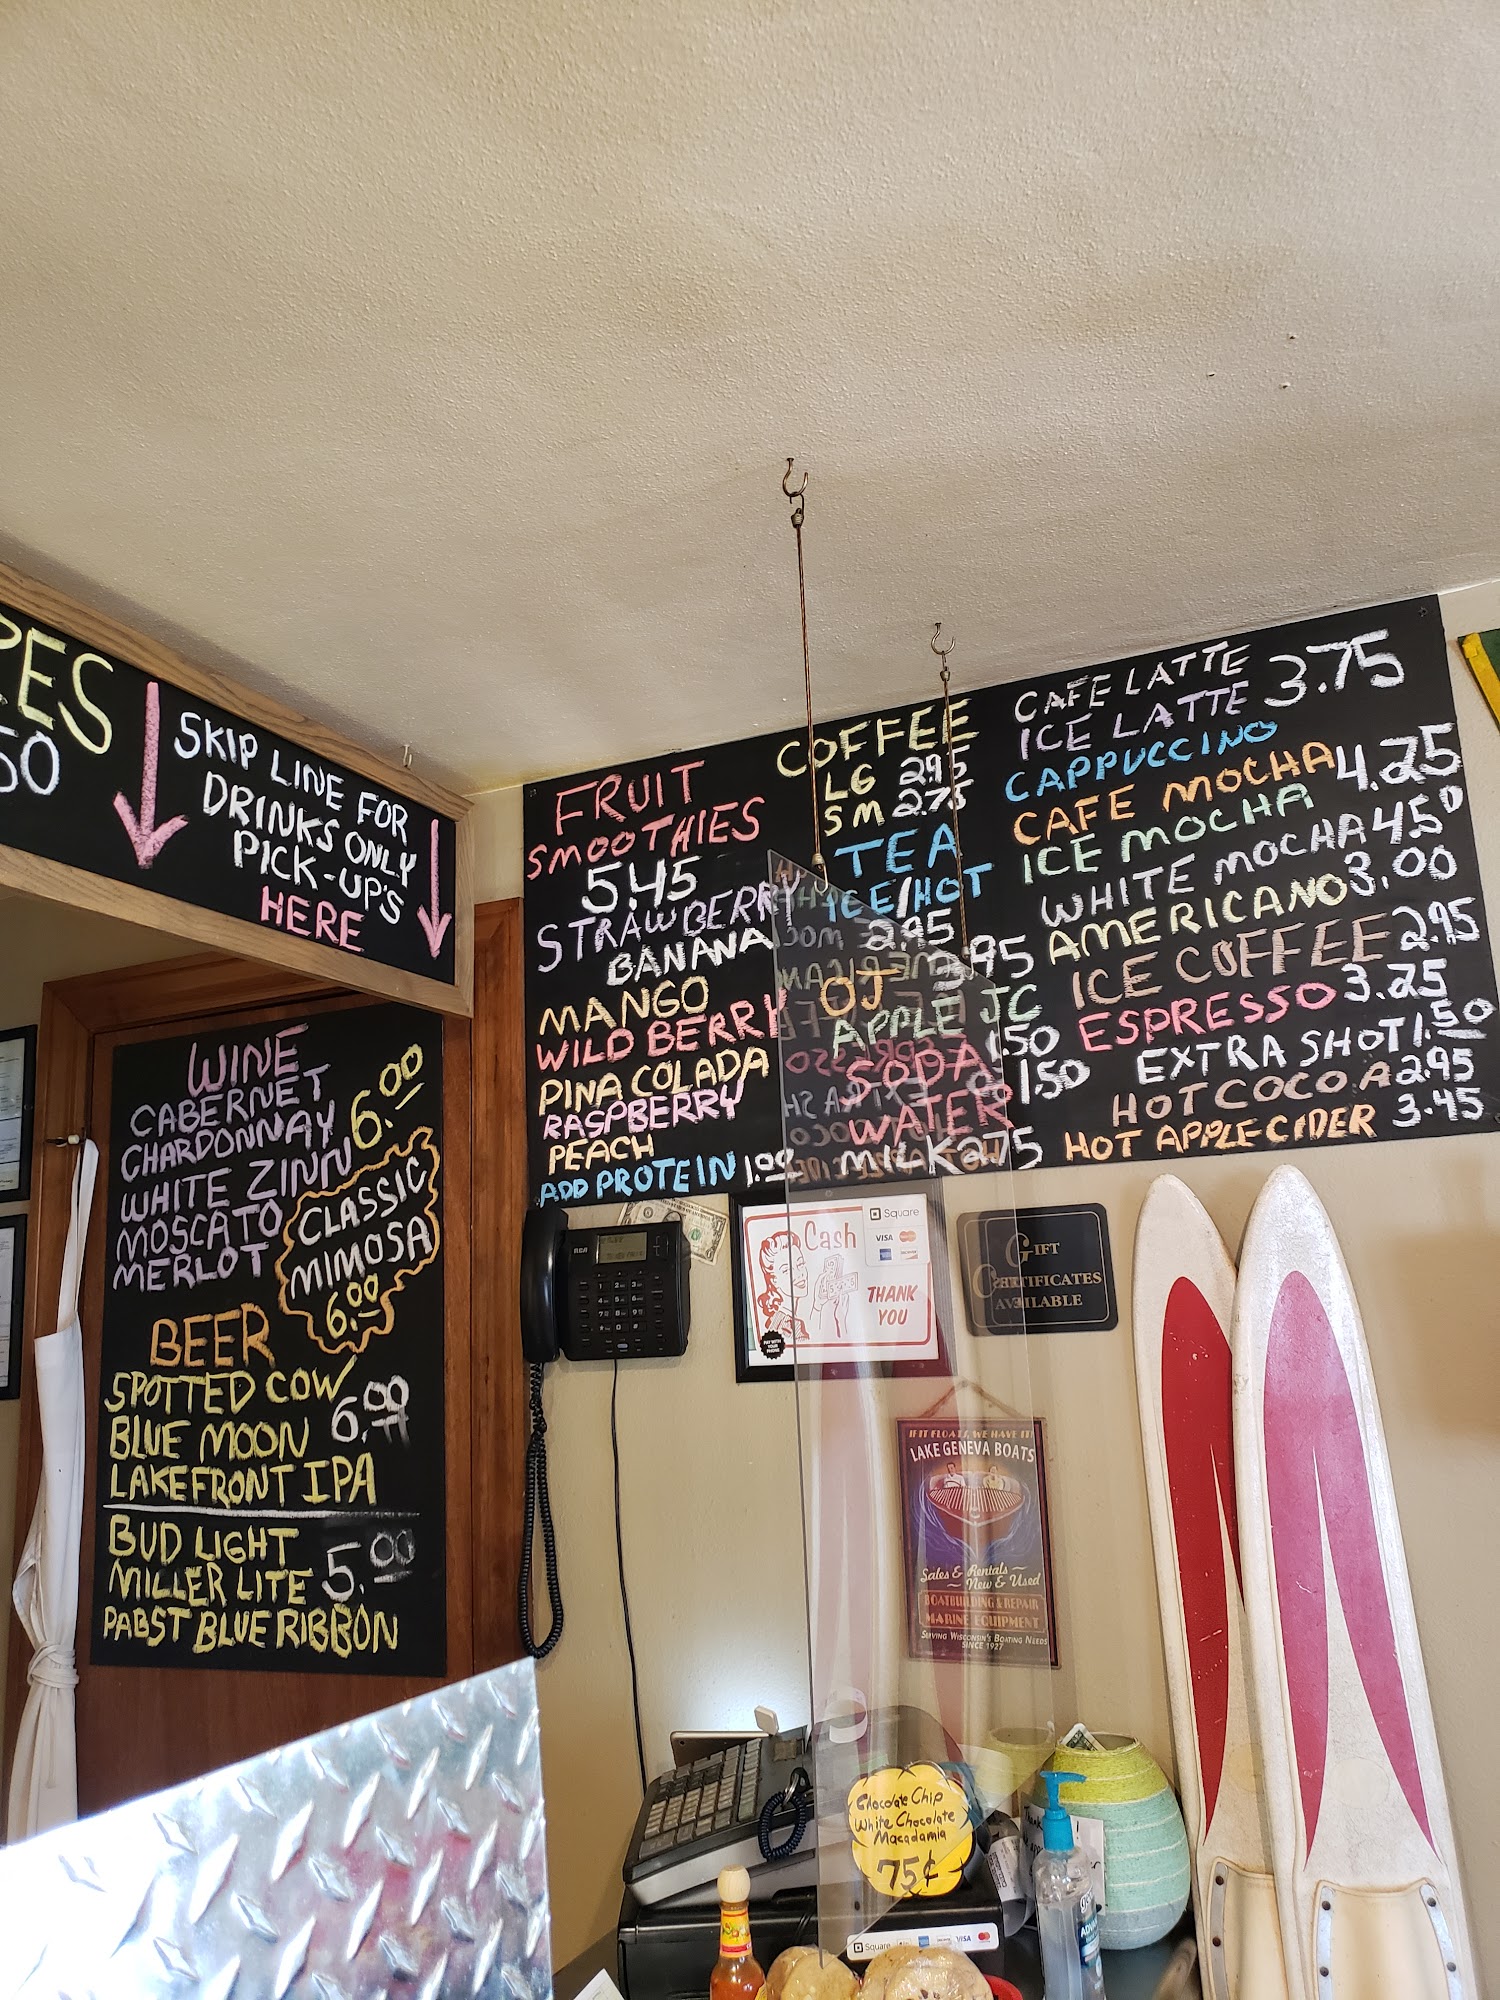 SKIP LINE FOR
DRINKS ONLY
PICK-UP'S
HERE
WINE
CABERNET
CHARDONNAY 6.00
WHITE ZINN
MOSCATO
MERLOT
CLASSIC
MIMOSA
6.00
BEER
SPOTTED COW
BLUE MOON 6.00
LAKEFRONT IPA
BUD LIGHT
MILLER LITE 5.00
PABST BLUE RIBBON
FRUIT
SMOOTHIES
5.45
STRAWBERRY
BANANA
MANGO
WILD BERRY
PINA COLADA
RASPBERRY
PEACH
ADD PROTEIN 1.00
COFFEE
LG 2.95
SM 2.75
TEA
ICE/HOT
2.95
OJ 3.95
APPLE JC
SODA 1.50
WATER 1.50
MILK 2.75
CAFE LATTE
ICE LATTE 3.75
CAPPUCCINO
CAFE MOCHA 4.25
ICE MOCHA
WHITE MOCHA 4.50
AMERICANO 3.00
ICE COFFEE 2.95
ESPRESSO 3.25
EXTRA SHOT 1.50
HOT COCOA 2.95
HOT APPLE CIDER 3.45
RCA
Cash
Square
VISA
THANK
YOU
PAY WITH
YOUR
PHONE
GIFT
CERTIFICATES
AVAILABLE
IF IT FLOATS, WE HAVE IT!
LAKE GENEVA BOATS
Sales & Rentals
New & Used
BOATBUILDING & REPAIR
MARINE EQUIPMENT
SERVING WISCONSIN'S BOATING NEEDS
SINCE 1927
Chocolate Chip
White Chocolate
Macadamia
75¢
Square
VISA